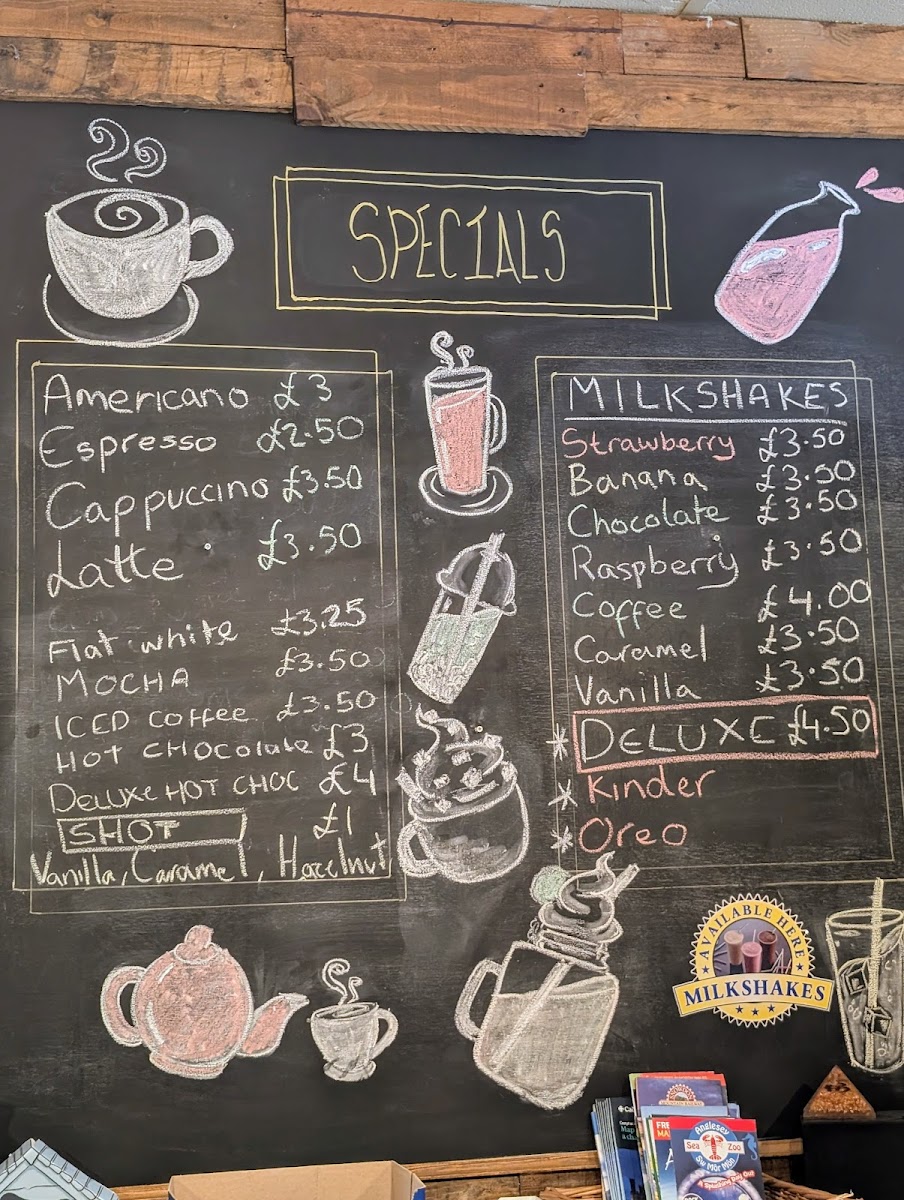 SPECIALS
Americano £3
Espresso £2.50
Cappuccino £3.50
Latte £3.50
Flat white £3.25
MOCHA £3.50
ICED COFFEE £3.50
HOT CHOCOLATE £3
DELUXE HOT CHOC £4
SHOT £1
Vanilla, Caramel, Hazelnut
MILKSHAKES
Strawberry £3.50
Banana £3.50
Chocolate £3.50
Raspberry £3.50
Coffee £4.00
Caramel £3.50
Vanilla £3.50
* DELUXE £4.50
* Kinder
* Oreo
AVAILABLE HERE
MILKSHAKES
Anglesey
Sea Zoo
Sŵ Môr Môn